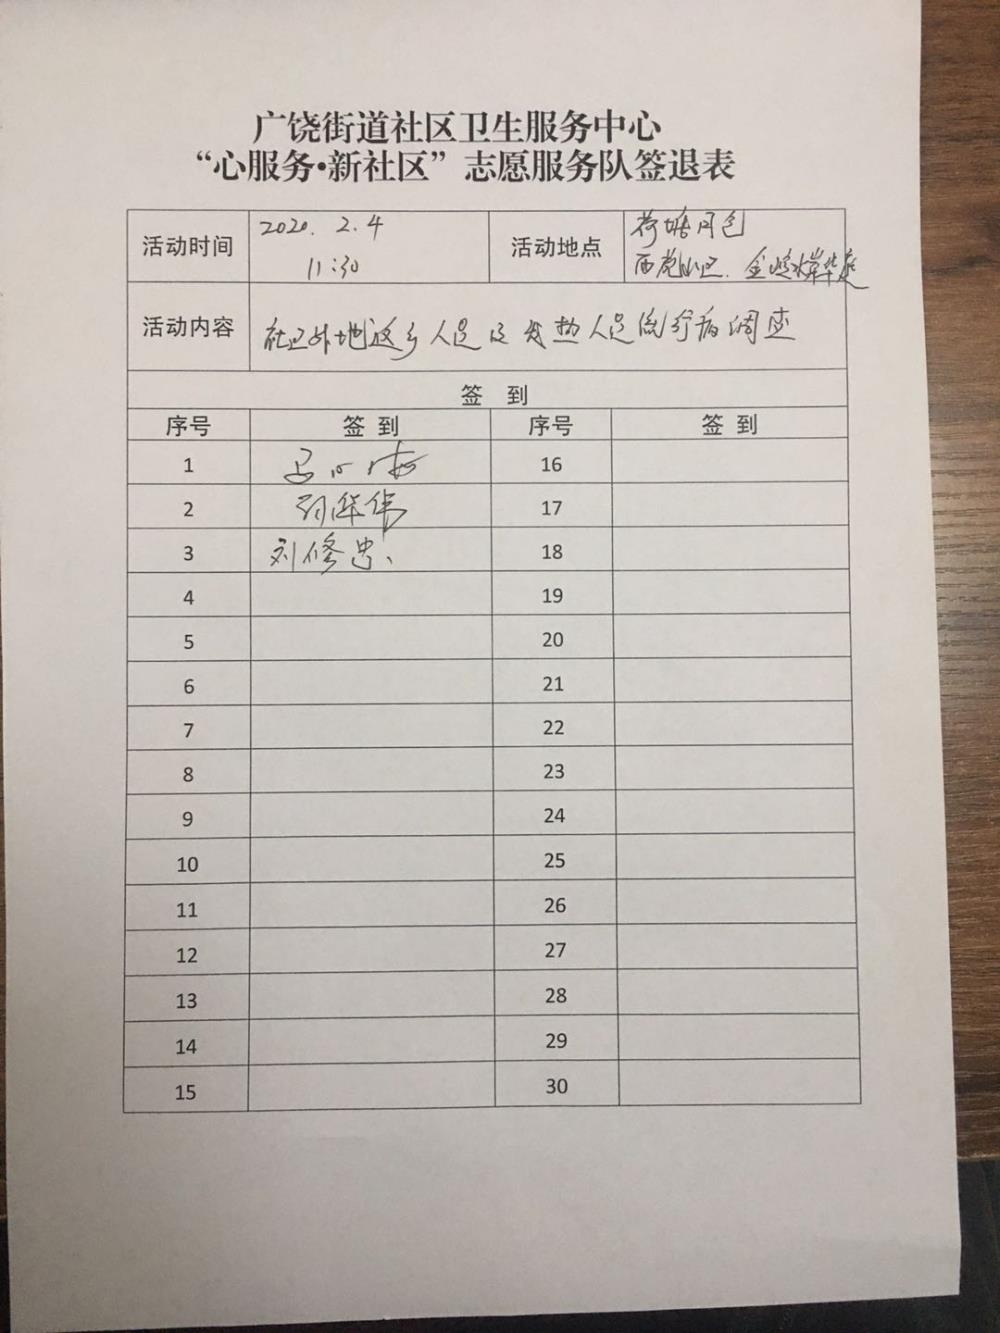 广饶街道社区卫生服务中心
“心服务·新社区”志愿服务队签退表
活动时间 2020. 2.4
11:30
活动地点 荷塘月色
西苑小区. 金
活动内容 外地返乡人员及发热人员流行病调查
签 到
序号 签 到 序号 签 到
1 16
2 17
3 刘修忠 18
4 19
5 20
6 21
7 22
8 23
9 24
10 25
11 26
12 27
13 28
14 29
15 30